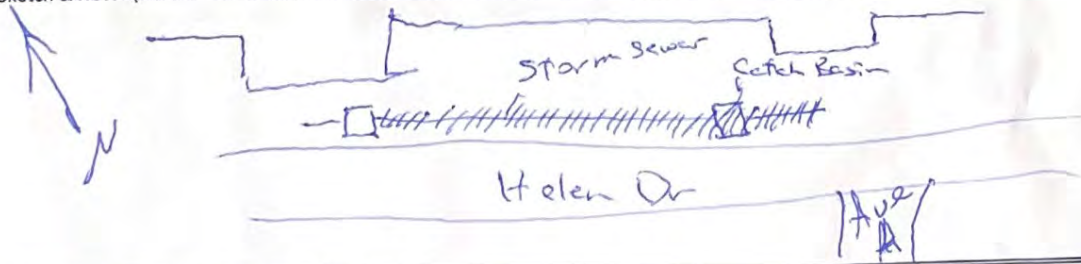 Storm Sewer
Catch Basin
N
Helen Dr
Ave
A